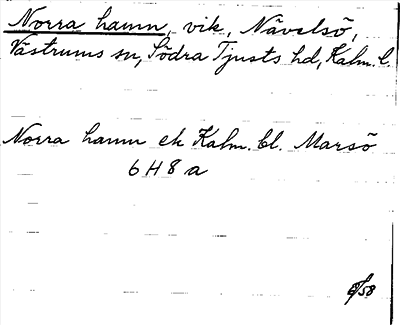 Norra hamn, vik, Nävelsö,
Västrums sn, Södra Tjusts hd, Kalm. l.
Norra hamn ek Kalm. bl. Marsö
6 H 8 a